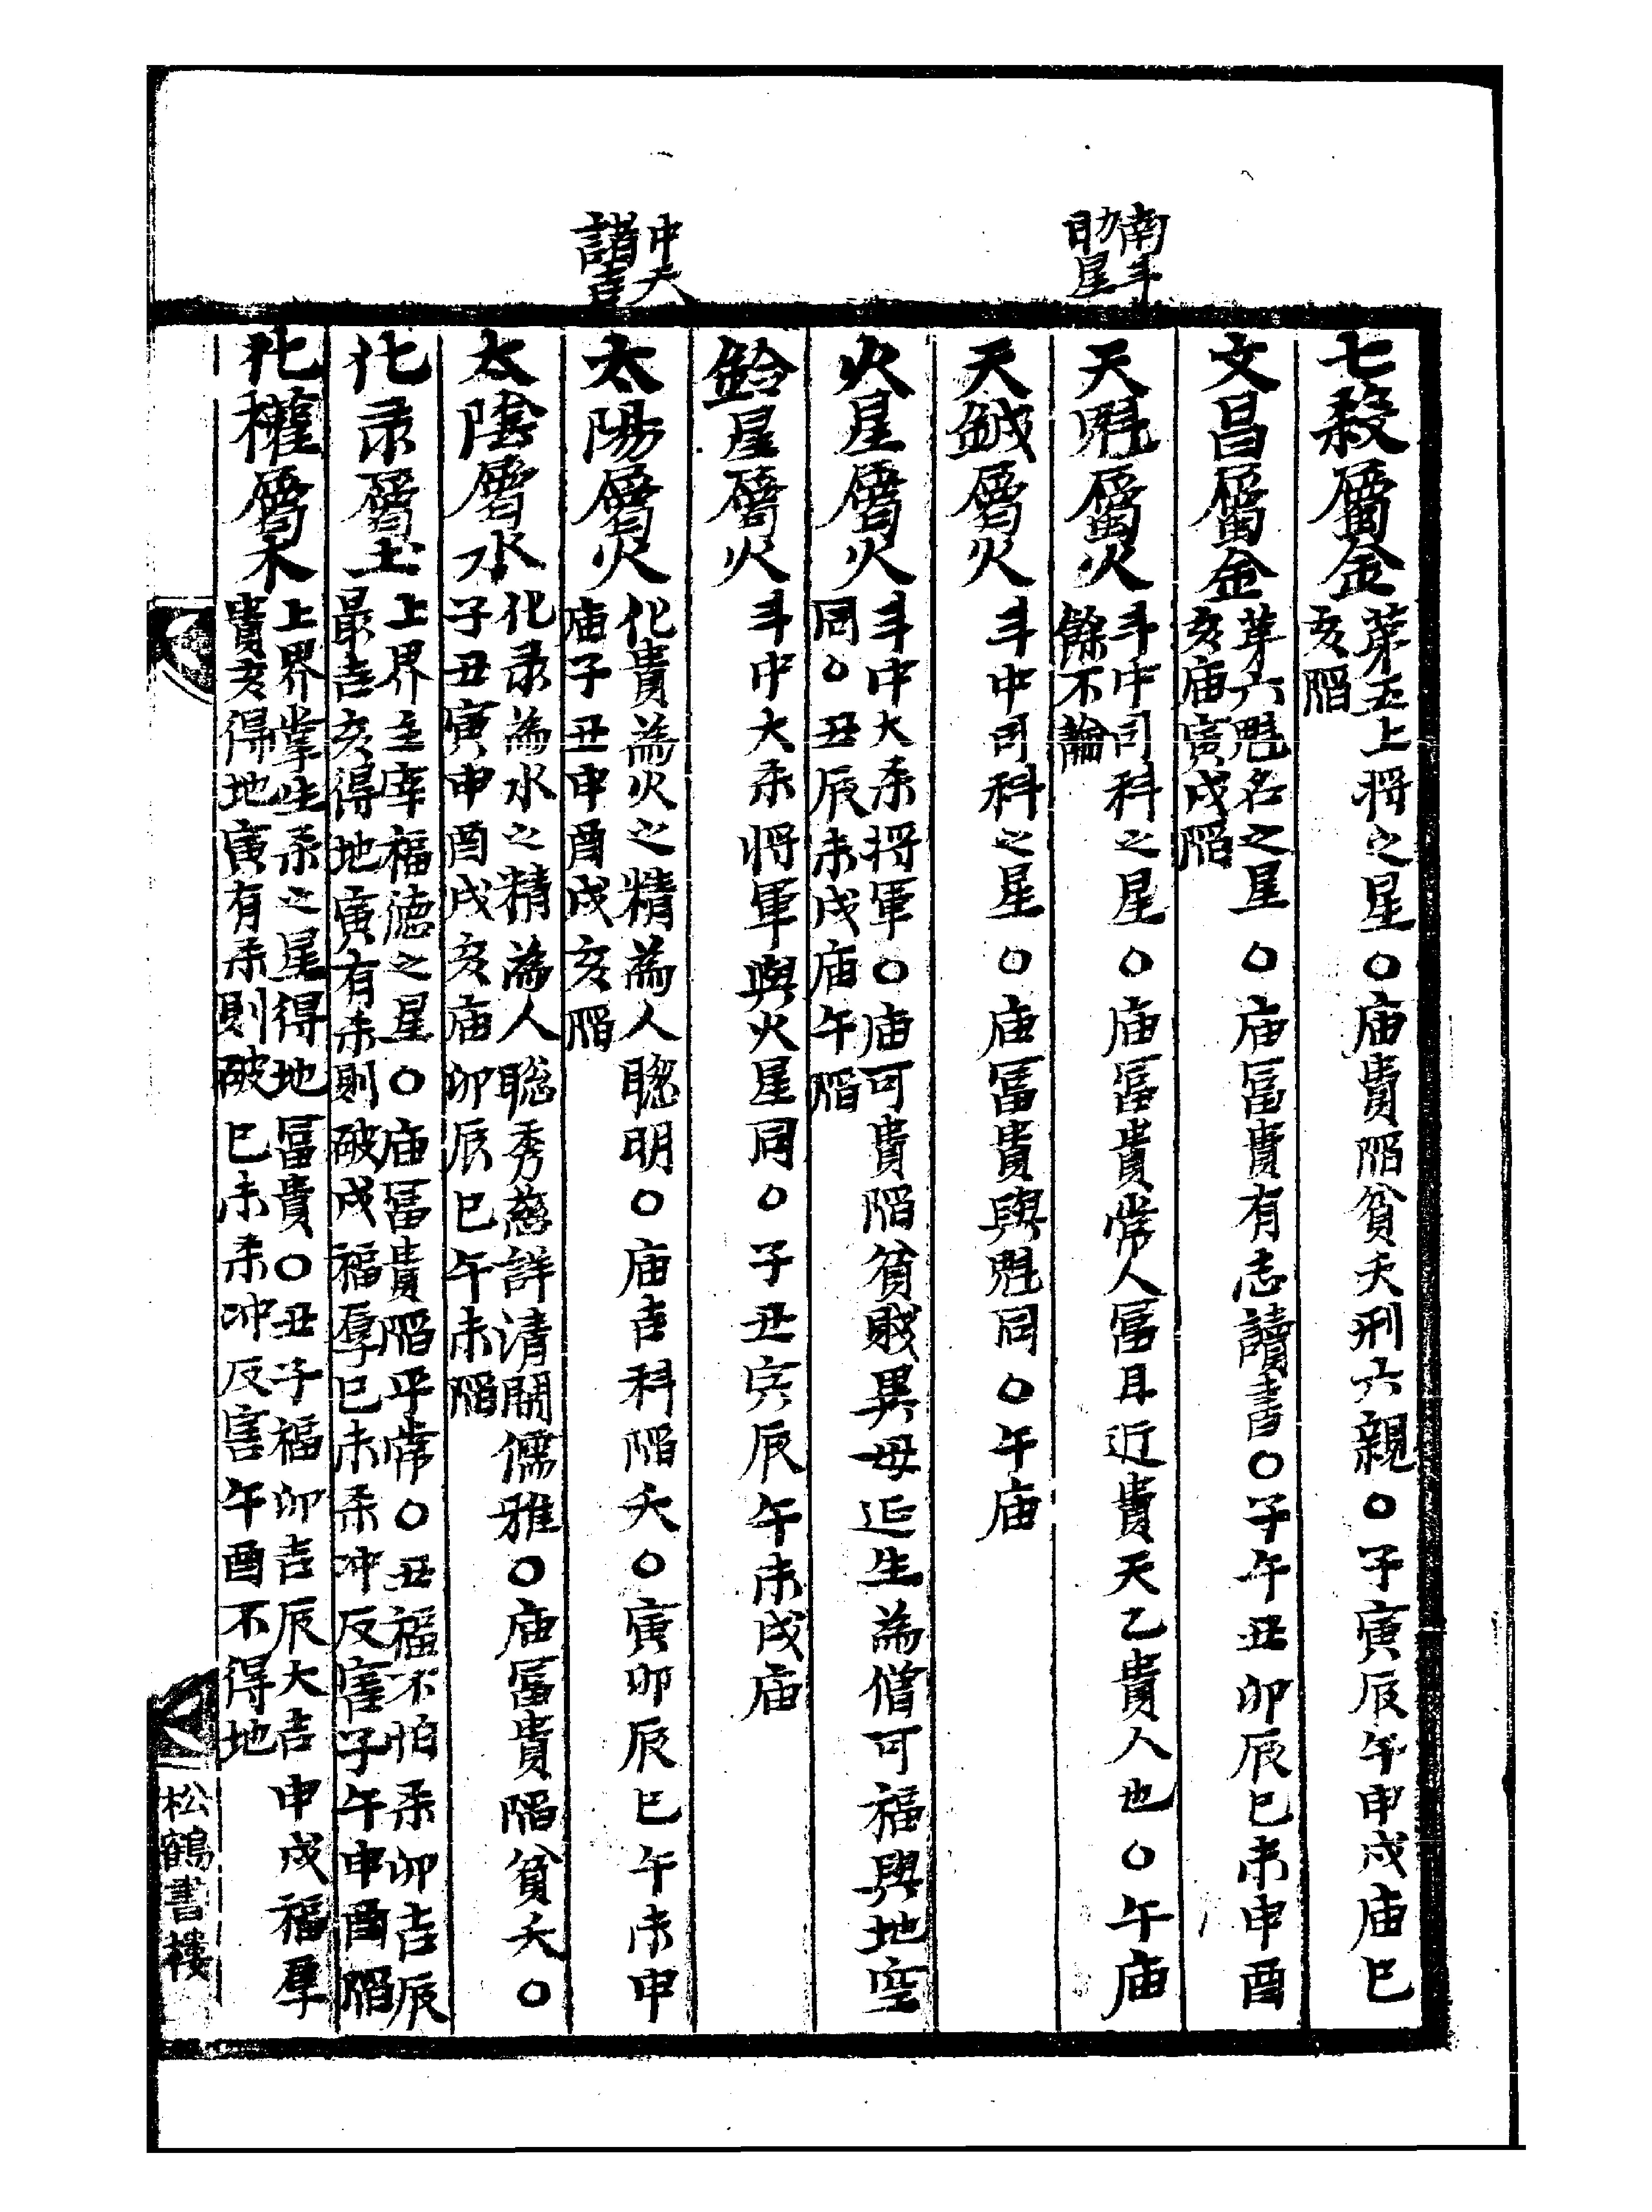 南斗
助星
中天
諸吉
七殺屬金
第五上将之星〇庙貴陷貧夭刑六親〇子寅辰午申戌庙巳
亥陷
文昌屬金
第六魁名之星〇庙冨貴有志讀書〇子午丑卯辰巳未申酉
亥庙寅戌陷
天魁屬火
斗中司科之星〇庙冨貴常人冨且近貴天乙貴人也〇午庙
餘不論
天鉞屬火
斗中司科之星〇庙冨貴與魁同〇午庙
火星屬火
斗中大杀将軍〇庙可貴陷貧賎異母延生為僧可福與地空
同〇丑辰未戌庙午陷
鈴星屬火
斗中大杀将軍與火星同〇子丑寅辰午未戌庙
太陽屬火
化貴為火之精為人聪明〇庙吉科陷夭〇寅卯辰巳午未申
庙子丑申酉戌亥陷
太陰屬水
化录為水之精為人聪秀慈詳清閑儒雅〇庙冨貴陷貧夭〇
子丑寅申酉戌亥庙卯辰巳午未陷
化录屬土
上界主宰福德之星〇庙冨貴陷平常〇丑福不怕杀卯吉辰
最吉亥得地寅有杀則破戌福厚巳未杀冲反害子午申酉陷
化權屬木
上界掌生杀之星得地冨貴〇丑子福卯吉辰大吉申戌福厚
貴亥得地寅有杀則破巳未杀冲反害午酉不得地
松鶴書樓